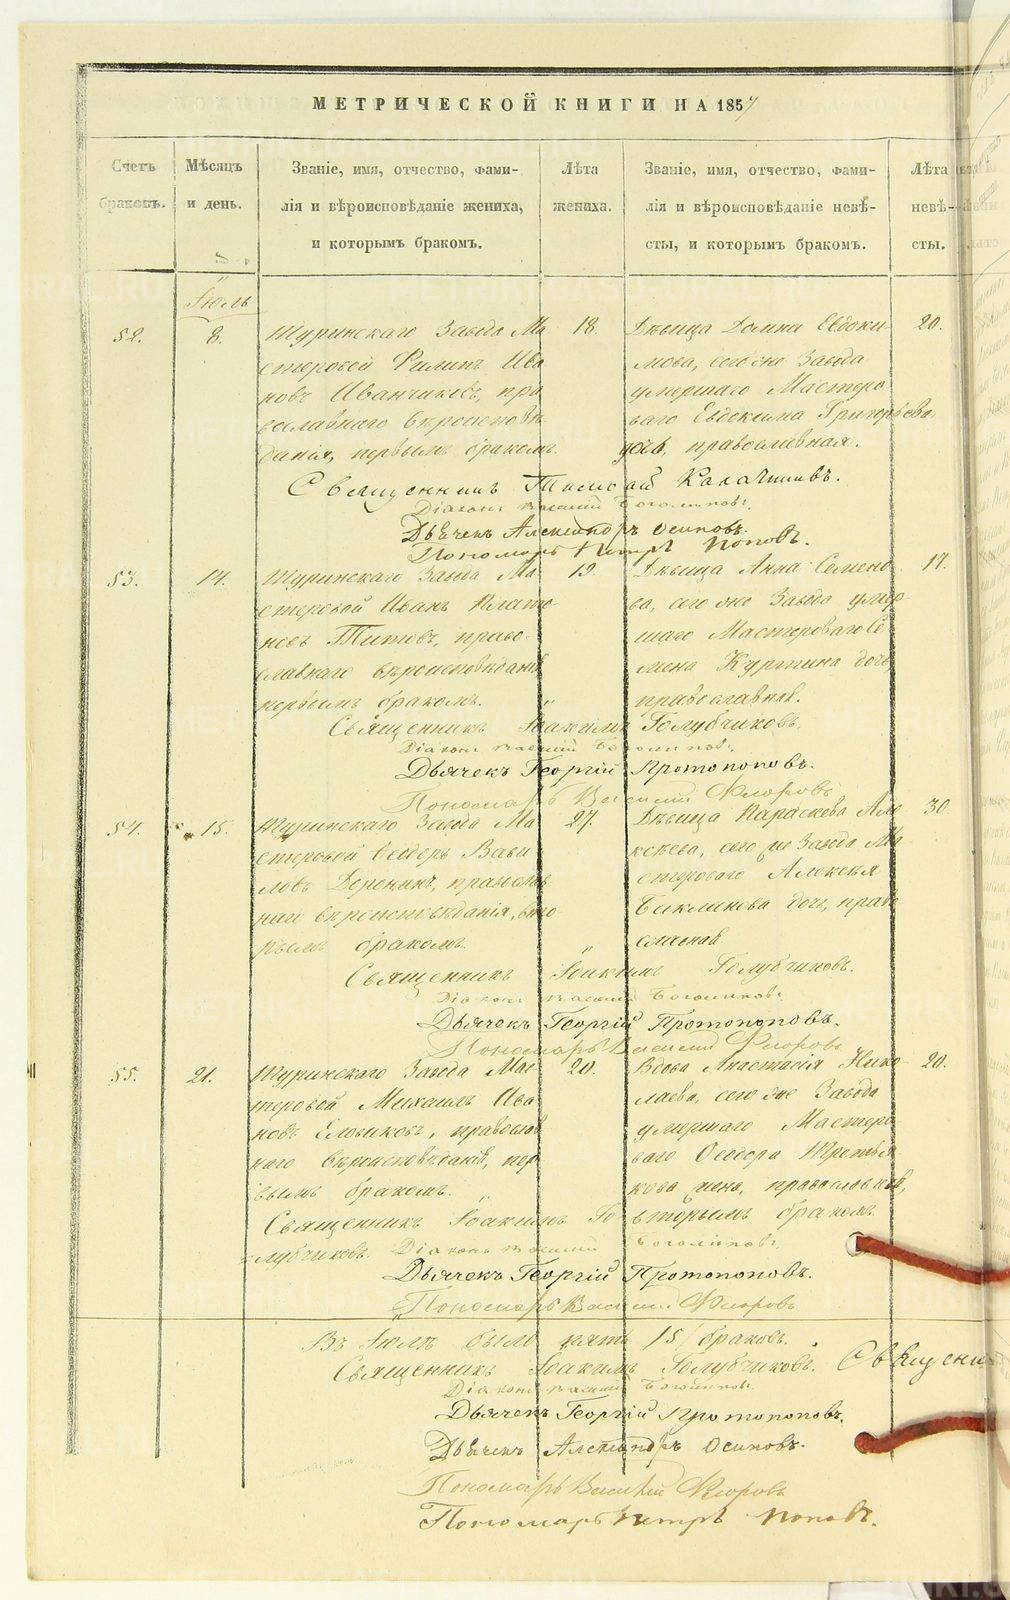 МЕТРИЧЕСКОЙ КНИГИ НА 1857
Счетъ браковъ.
Мѣсяцъ и день.
Званіе, имя, отчество, фами-
лія и вѣроисповѣданіе жениха,
и которымъ бракомъ.
Лѣта жениха.
Званіе, имя, отчество, фами-
лія и вѣроисповѣданіе невѣ-
сты, и которымъ бракомъ.
Лѣта невѣ-
сты.
Іюль
52.
8.
Туринскаго Завода Ма
стеровой Филипъ Ива
новъ Иванчиковъ, пра
вославнаго вѣроисповѣ
данія, первымъ бракомъ.
18.
Дѣвица Домна Евдоки-
мова, сего же Завода
умершаго Мастеро
ваго Евдокима Григорьева
дочь, православная.
20.
Священникъ Тимофей Калашниковъ.
Діаконъ Василій
Дьячекъ Александръ Осиповъ.
Пономарь Петръ Поповъ.
53.
14.
Туринскаго Завода Ма-
стеровой Иванъ Плато-
новъ Титовъ, право-
славнаго вѣроисповѣданія
первымъ бракомъ.
19.
Дѣвица Анна Семено-
ва, сего же Завода умер-
шаго Мастероваго Се
мена Куртина дочь,
православная.
17.
Священникъ Іоакимъ Голубчиковъ.
Діаконъ Василій
Дьячекъ Георгій Протопоповъ.
Пономарь Василій Флоровъ
54.
15.
Туринскаго Завода Ма-
стеровой Ѳеодоръ Вави
ловъ Доронинъ, православ
наго вѣроисповѣданія, вто-
рымъ бракомъ.
27.
Дѣвица Параскева Але
ксѣева, сего же Завода Ма
стероваго Алексѣя
дочь, право
славная
30
Священникъ Іоакимъ Голубчиковъ.
Діаконъ Василій
Дьячекъ Георгій Протопоповъ.
Пономарь Василій Флоровъ
55.
21.
Туринскаго Завода Мас-
теровой Михаилъ Ива
новъ Еловиковъ, православ
наго вѣроисповѣданія, пер
вымъ бракомъ.
20.
Вдова Анастасія Нико-
лаева, сего же Завода
умершаго Мастеро-
ваго Ѳеодора Третья
кова жена, православная,
вторымъ бракомъ.
20.
Священникъ Іоакимъ Го-
лубчиковъ. Діаконъ Василій
Дьячекъ Георгій Протопоповъ.
Пономарь Василій Флоровъ
Въ Іюлѣ было пять /5/ браковъ.
Священникъ Іоакимъ Голубчиковъ. Священни
Діаконъ Василій
Дьячекъ Георгій Протопоповъ.
Дьячекъ Александръ Осиповъ.
Пономарь Василій Флоровъ
Пономарь Петръ Поповъ.